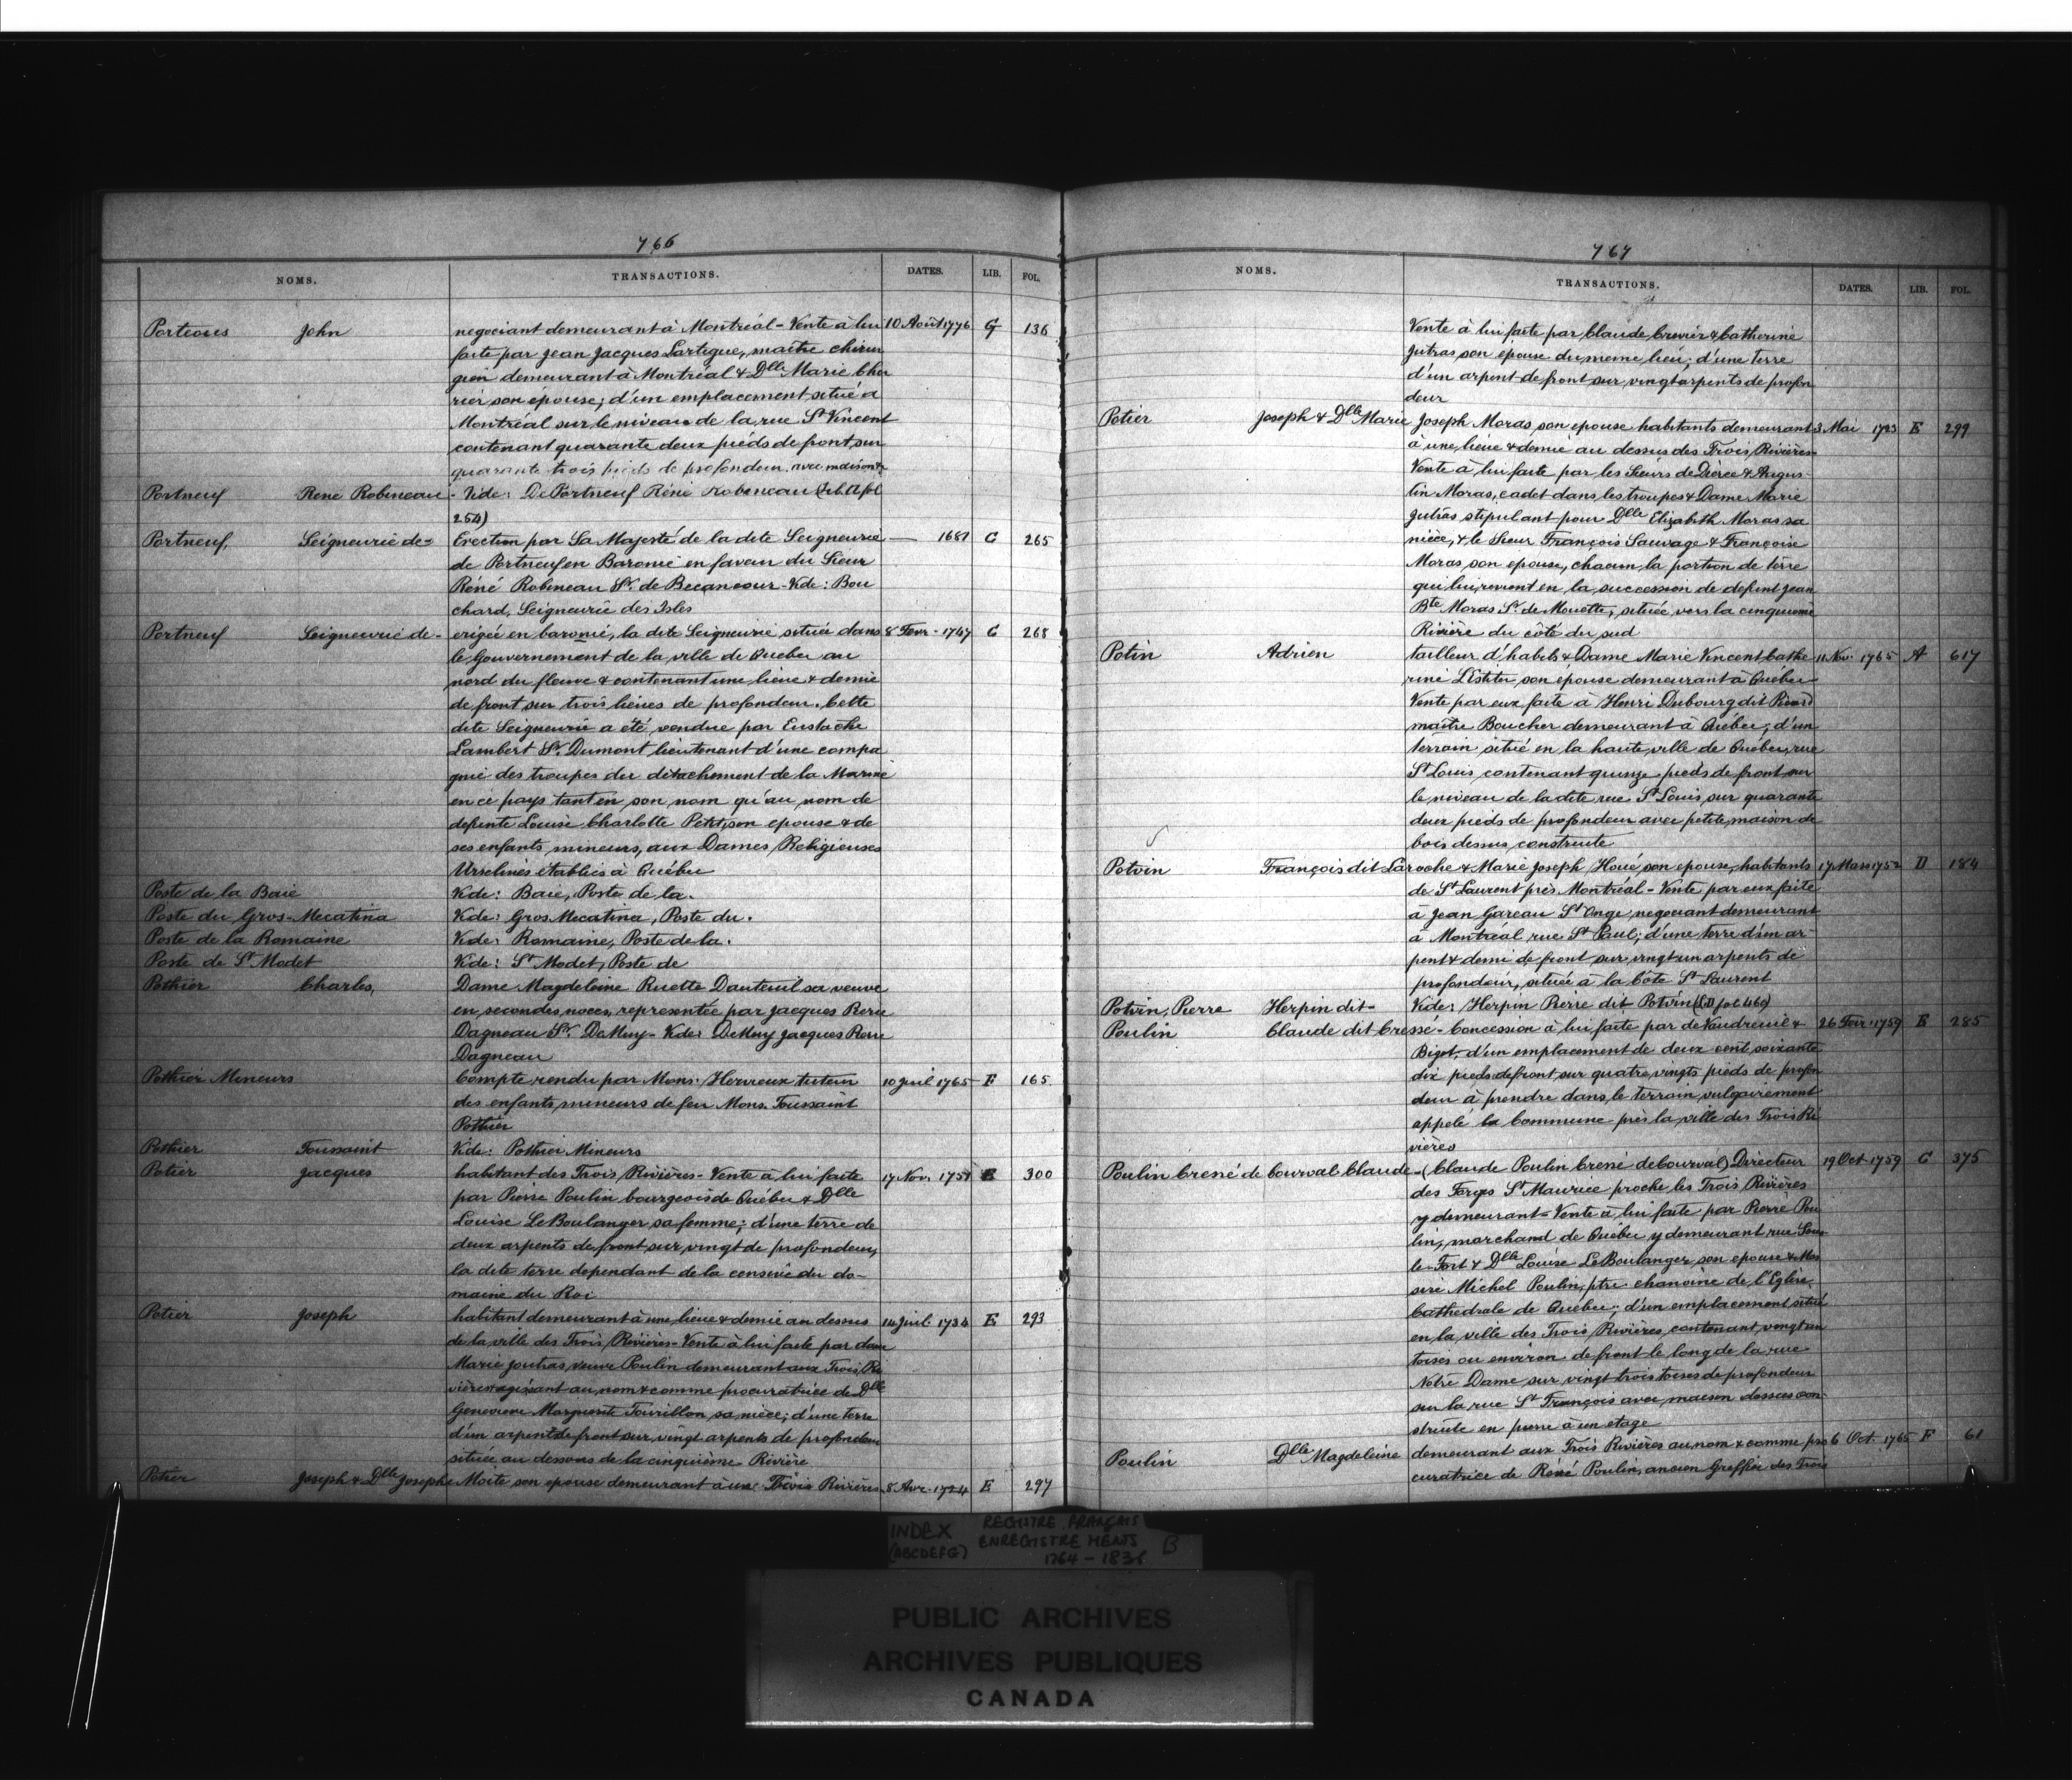 766
NOMS. TRANSACTIONS. DATES. LIB. FOL.
Porteous John negociant demeurant à Montréal - Vente à lui 10 Août 1776 G 136
faite par Jean Jacques Lartigue, maitre chirur
gien demeurant à Montréal & Dlle Marie Cher
rier son épouse; d'un emplacement situé à
Montréal sur le niveau de la rue St Vincent
contenant quarante deux pieds de front sur
quarante trois pieds de profondeur avec maison &
Portneuf René Robineau - Vide: De Portneuf Réné Robineau (Lib. A fol
254)
Portneuf, Seigneurie de - Erection par Sa Majesté de la dite Seigneurie — 1681 C 265
de Portneuf en Baronie en faveur du Sieur
Réné Robineau Sr. de Becancour - Vide: Bou
chard, Seigneurie des Isles
Portneuf Seigneurie de - erigée en baronie, la dite Seigneurie située dans 8 Fevr - 1747 C 268
le Gouvernement de la ville de Quebec au
nord du fleuve & contenant une lieue & demie
de front sur trois lieues de profondeur. Cette
dite Seigneurie a été vendue par Eustache
Lambert Sr. Dumont lieutenant d'une compa
gnie des troupes du détachement de la Marine
en ce pays tant en son nom qu'au nom de
defunte Louise Charlotte Petit, son epouse & de
ses enfants mineurs, aux Dames Religieuses
Urselines établies à Québec
Poste de la Baie Vide: Baie, Poste de la.
Poste du Gros-Mecatina Vide: Gros Mecatina, Poste du.
Poste de la Romaine Vide: Romaine, Poste de la.
Poste de St Modet Vide: St Modet, Poste de
Pothier Charles, Dame Magdeleine Ruette Dauteuil sa veuve
en secondes noces, representée par Jacques Pierre
Dagneau Sr. DeMuy - Vide: DeMuy Jacques Pierre
Dagneau
Pothier Mineurs Compte rendu par Mons. Hervieux tuteur 10 Juil 1765 F 165
des enfants mineurs de feu Mons. Toussaint
Pothier
Pothier Toussaint Vide: Pothier Mineurs
Potier Jacques habitant des Trois Rivières - Vente à lui faite 17 Nov. 1751 E 300
par Pierre Poulin bourgeois de Québec & Dlle
Louise LeBoulanger sa femme; d'une terre de
deux arpents de front sur vingt de profondeur,
la dite terre dependant de la censive du do-
maine du Roi
Potier Joseph habitant demeurant à une lieue & demie au dessus 14 Juil 1734 E 293
de la ville des Trois Rivières - Vente à lui faite par dame
Marie Joutras, veuve Poulin demeurant aux Trois Ri
vières agissant au nom & comme procuratrice de Dlle
Genevieve Marguerite Tourillon sa niece; d'une terre
d'un arpent de front sur vingt arpents de profondeur
située au dessous de la cinquième Rivière
Potier Joseph & Dlle Josephe Moite son epouse demeurant à aux Trois Rivières 8 Avr. 1724 E 297
767
NOMS. TRANSACTIONS. DATES. LIB. FOL.
Vente à lui faite par Claude Crevier & Catherine
Jutras son épouse du meme lieu; d'une terre
d'un arpent de front sur vingt arpents de profon
deur
Potier Joseph & Dlle Marie Joseph Moras, son epouse habitants demeurant 3 Mai 1723 E 299
à une lieue & demie au dessus des Trois Rivières
Vente à lui faite par les Sieurs de & Augus
tin Moras, cadet dans les troupes & Dame Marie
Jutras stipulant pour Dlle Elizabeth Moras sa
nièce, & le Sieur François Sauvage & Françoise
Moras son epouse, chacun la portion de terre
qui lui revient en la succession de defunt Jean
Bte Moras Sr. de Mouette, située vers la cinquieme
Rivière du côté du sud
Potin Adrien tailleur d'habits & Dame Marie Vincent Cathe 11 Nov. 1765 A 617
rine son epouse demeurant à Quebec
Vente par eux faite à Henri Dubourg dit
maitre Boucher demeurant à Québec; d'un
terrain situé en la haute ville de Québec, rue
St Louis contenant quinze pieds de front sur
le niveau de la dite rue St Louis, sur quarante
deux pieds de profondeur avec petite maison de
bois dessus construite
Potvin François dit Laroche & Marie Joseph Houé son epouse, habitants 17 Mars 1752 D 184
de St Laurent près Montréal - Vente par eux faite
à Jean Gareau St Onge negociant demeurant
à Montréal rue St Paul; d'une terre d'un ar-
pent & demi de front sur vingt un arpents de
profondeur, située à la Côte St Laurent
Potvin, Pierre Herpin dit - Vide: Herpin Pierre dit Potvin (D fol. 460)
Poulin Claude dit Cresse - Concession à lui faite par de Vaudreuil & 26 Fevr 1759 E 285
Bigot, d'un emplacement de deux cent soixante
dix pieds de front, sur quatre vingts pieds de profon
deur à prendre dans le terrain vulgairement
appelé la Commune près la ville des Trois Ri
vières
Poulin Crené de Courval Claude - (Claude Poulin Crené de Courval) Directeur 19 Oct 1759 C 375
des Forges St Maurice proche les Trois Rivières
y demeurant - Vente à lui faite par Pierre Pou
lin, marchand de Québec y demeurant rue Sous
le Fort & Dlle Louise LeBoulanger son epouse & Mes
sire Michel Poulin, ptre chanoine de l'Eglise
Cathedrale de Québec; d'un emplacement situé
en la ville des Trois Rivières, contenant vingt un
toises ou environ de front le long de la rue
Notre Dame sur vingt trois toises de profondeur
sur la rue St François avec maison dessus con-
struite en pierre à un etage
Poulin Dlle Magdeleine demeurant aux Trois Rivières au nom & comme pro 6 Oct. 1765 F 61
curatrice de Réné Poulin, ancien Greffier des Trois
INDEX REGISTRE FRANÇAIS
(ABCDEFG) ENREGISTREMENTS B
1764 - 1836
PUBLIC ARCHIVES
ARCHIVES PUBLIQUES
CANADA